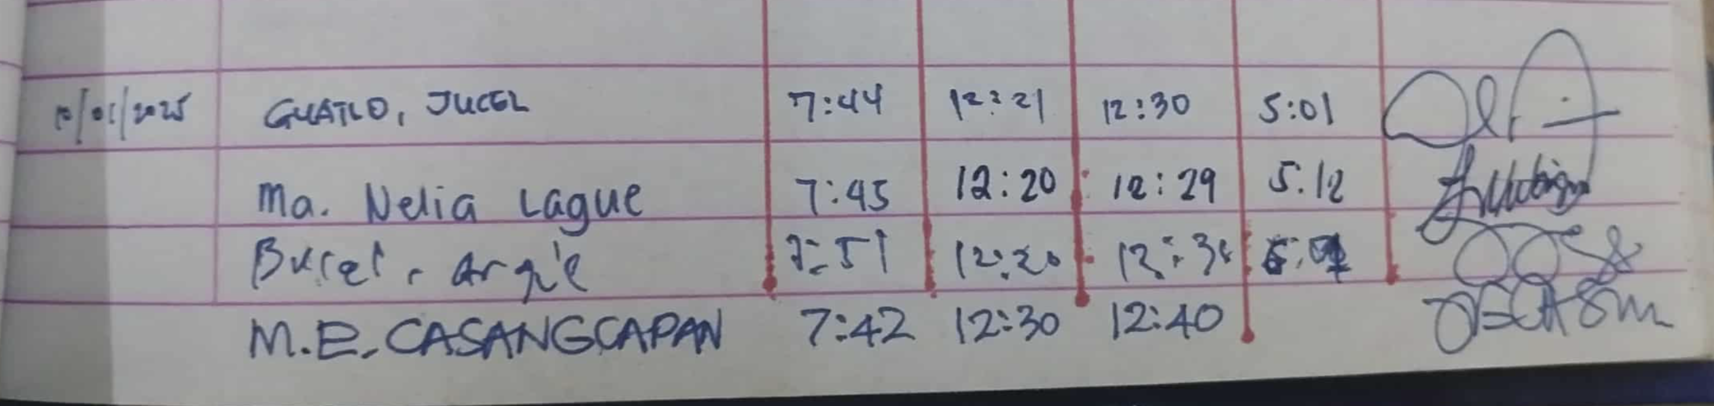 10/01/2025 GUATLO, JUCEL 7:44 12:21 12:30 5:01
Ma. Nelia Lague 7:45 12:20 12:29 5:12
Bucel, Argie 7:51 12:20 12:30
M.E. CASANGCAPAN 7:42 12:30 12:40